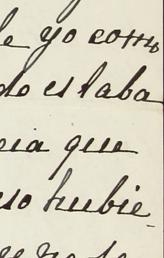 e yo como
do estaba
cia que
so hubie